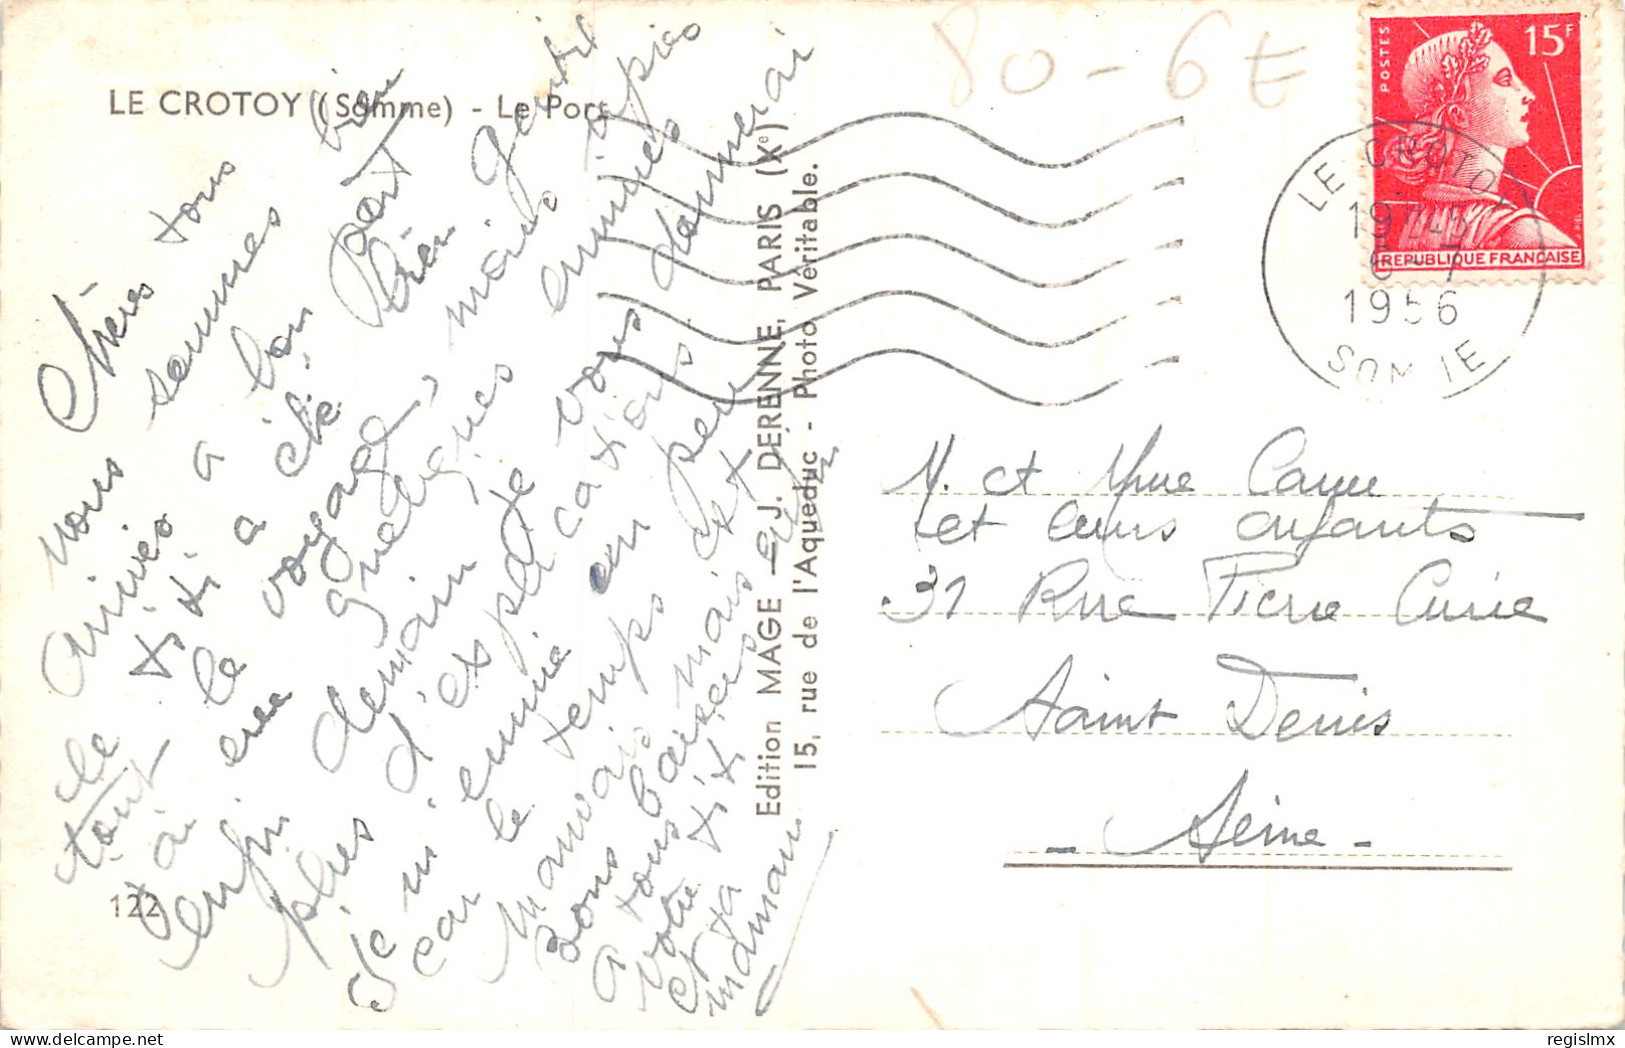 LE CROTOY (Somme) - Le Port
80 - 6 E
POSTES
15F
REPUBLIQUE FRANÇAISE
LE CROTOY
19
6 - 7
1956
Chères tous
nous sommes bien
arrivés a bon Port
titi a été bien
le voyage, mais
enfin quelques ennuies
demain je vous donnerai
plus d'explications
Je m'ennuie un peu
car le temps est
mauvais mais
Bons baisers
a tous
votre titi
et ta
maman
M. et Mme Canu
et leurs enfants
31 Rue Pierre Curie
Saint Denis
- Seine -
Edition MAGE - J. DÉRENNE, PARIS (Xe)
15, rue de l'Aqueduc - Photo Véritable.
122
regislmx